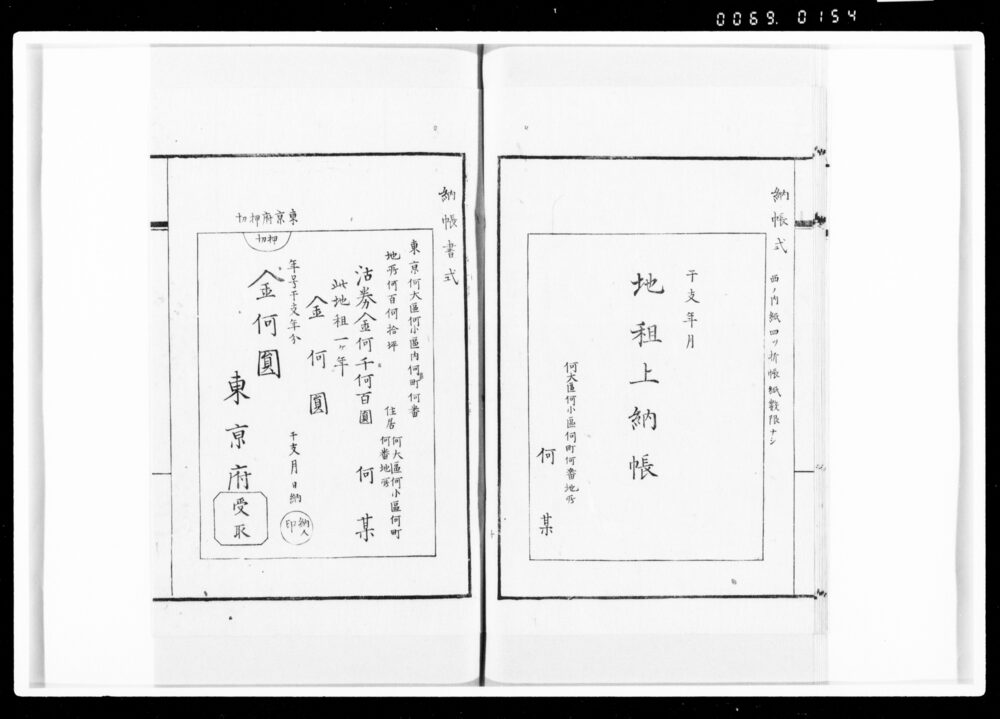 0069. 0154
納帳式
西ノ内紙四ツ折帳紙数限ナシ
干支年月
地租上納帳
何大區何小區何町何番地所
何某
納帳書式
東京何大區何小區内何町何番
地所何百何拾坪
住居
何大區何小區何町
何番地所
沽券金何千何百圓
何某
此地租一ヶ年
金何圓
年号干支年分
干支月日納
納人
印
金何圓
東京府
受取
東京府押切
押切